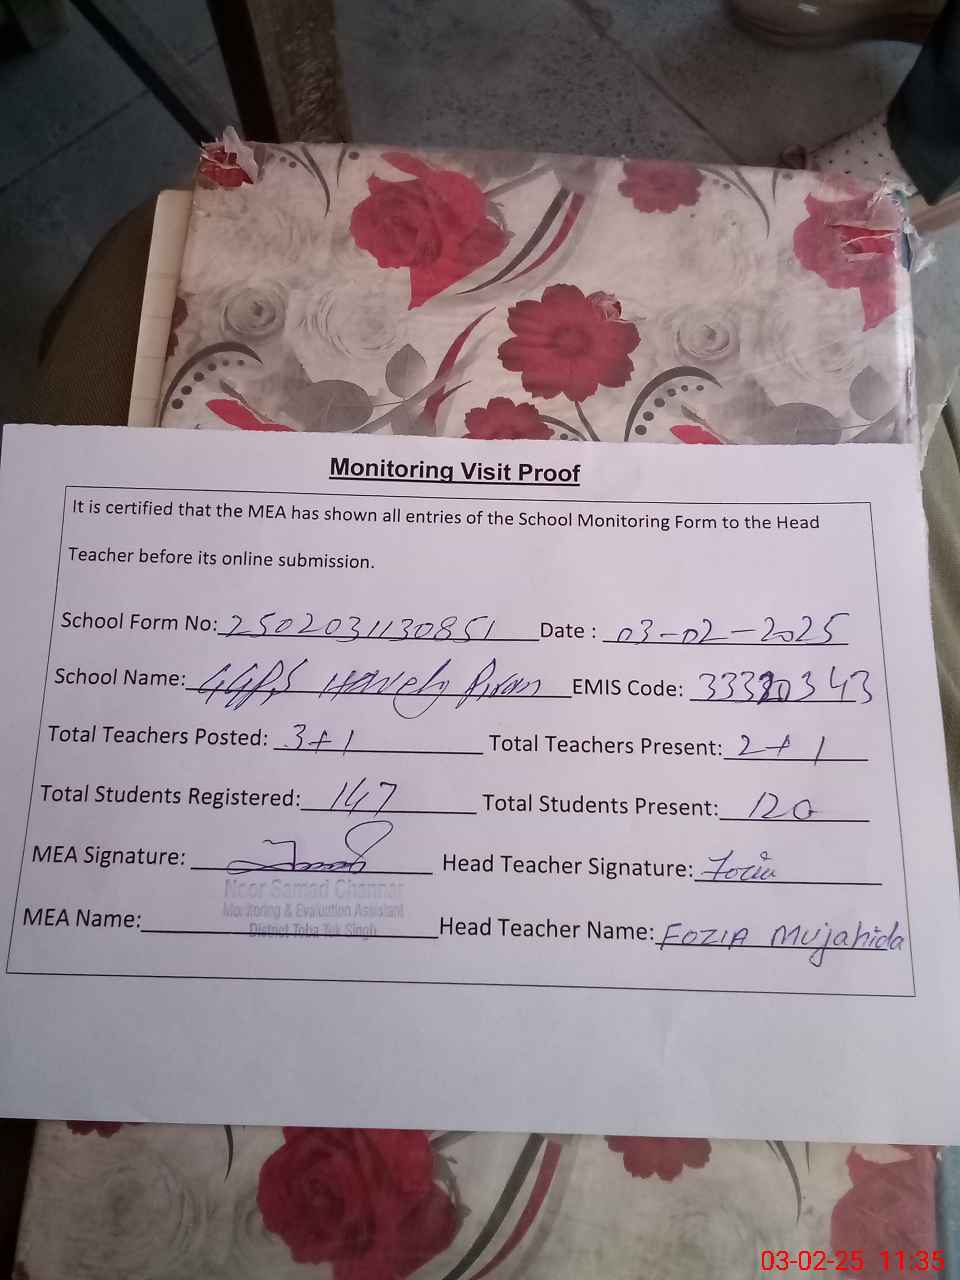 Monitoring Visit Proof
It is certified that the MEA has shown all entries of the School Monitoring Form to the Head
Teacher before its online submission.
School Form No: 2502031130851 Date : 03-02-2025
School Name: GGPS Haveli Piran EMIS Code: 33320343
Total Teachers Posted: 3+1 Total Teachers Present: 2+1
Total Students Registered: 147 Total Students Present: 120
MEA Signature: Head Teacher Signature: Fozia
Noor Samad Channar
Monitoring & Evaluation Assistant
District Toba Tek Singh
MEA Name: Head Teacher Name: FOZIA Mujahida
03-02-25 11:35